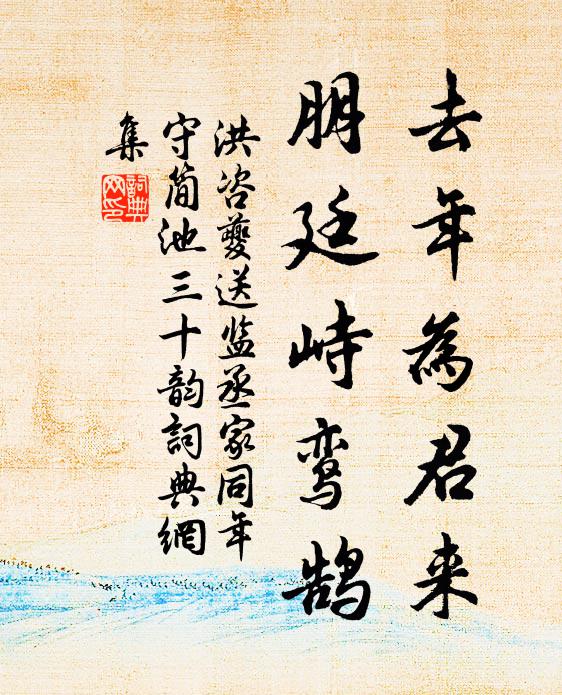 去年為君来
朋廷峙鸾鹄
洪咨夔送监丞家同年
守简池三十韵詞典網
集
詞典网印